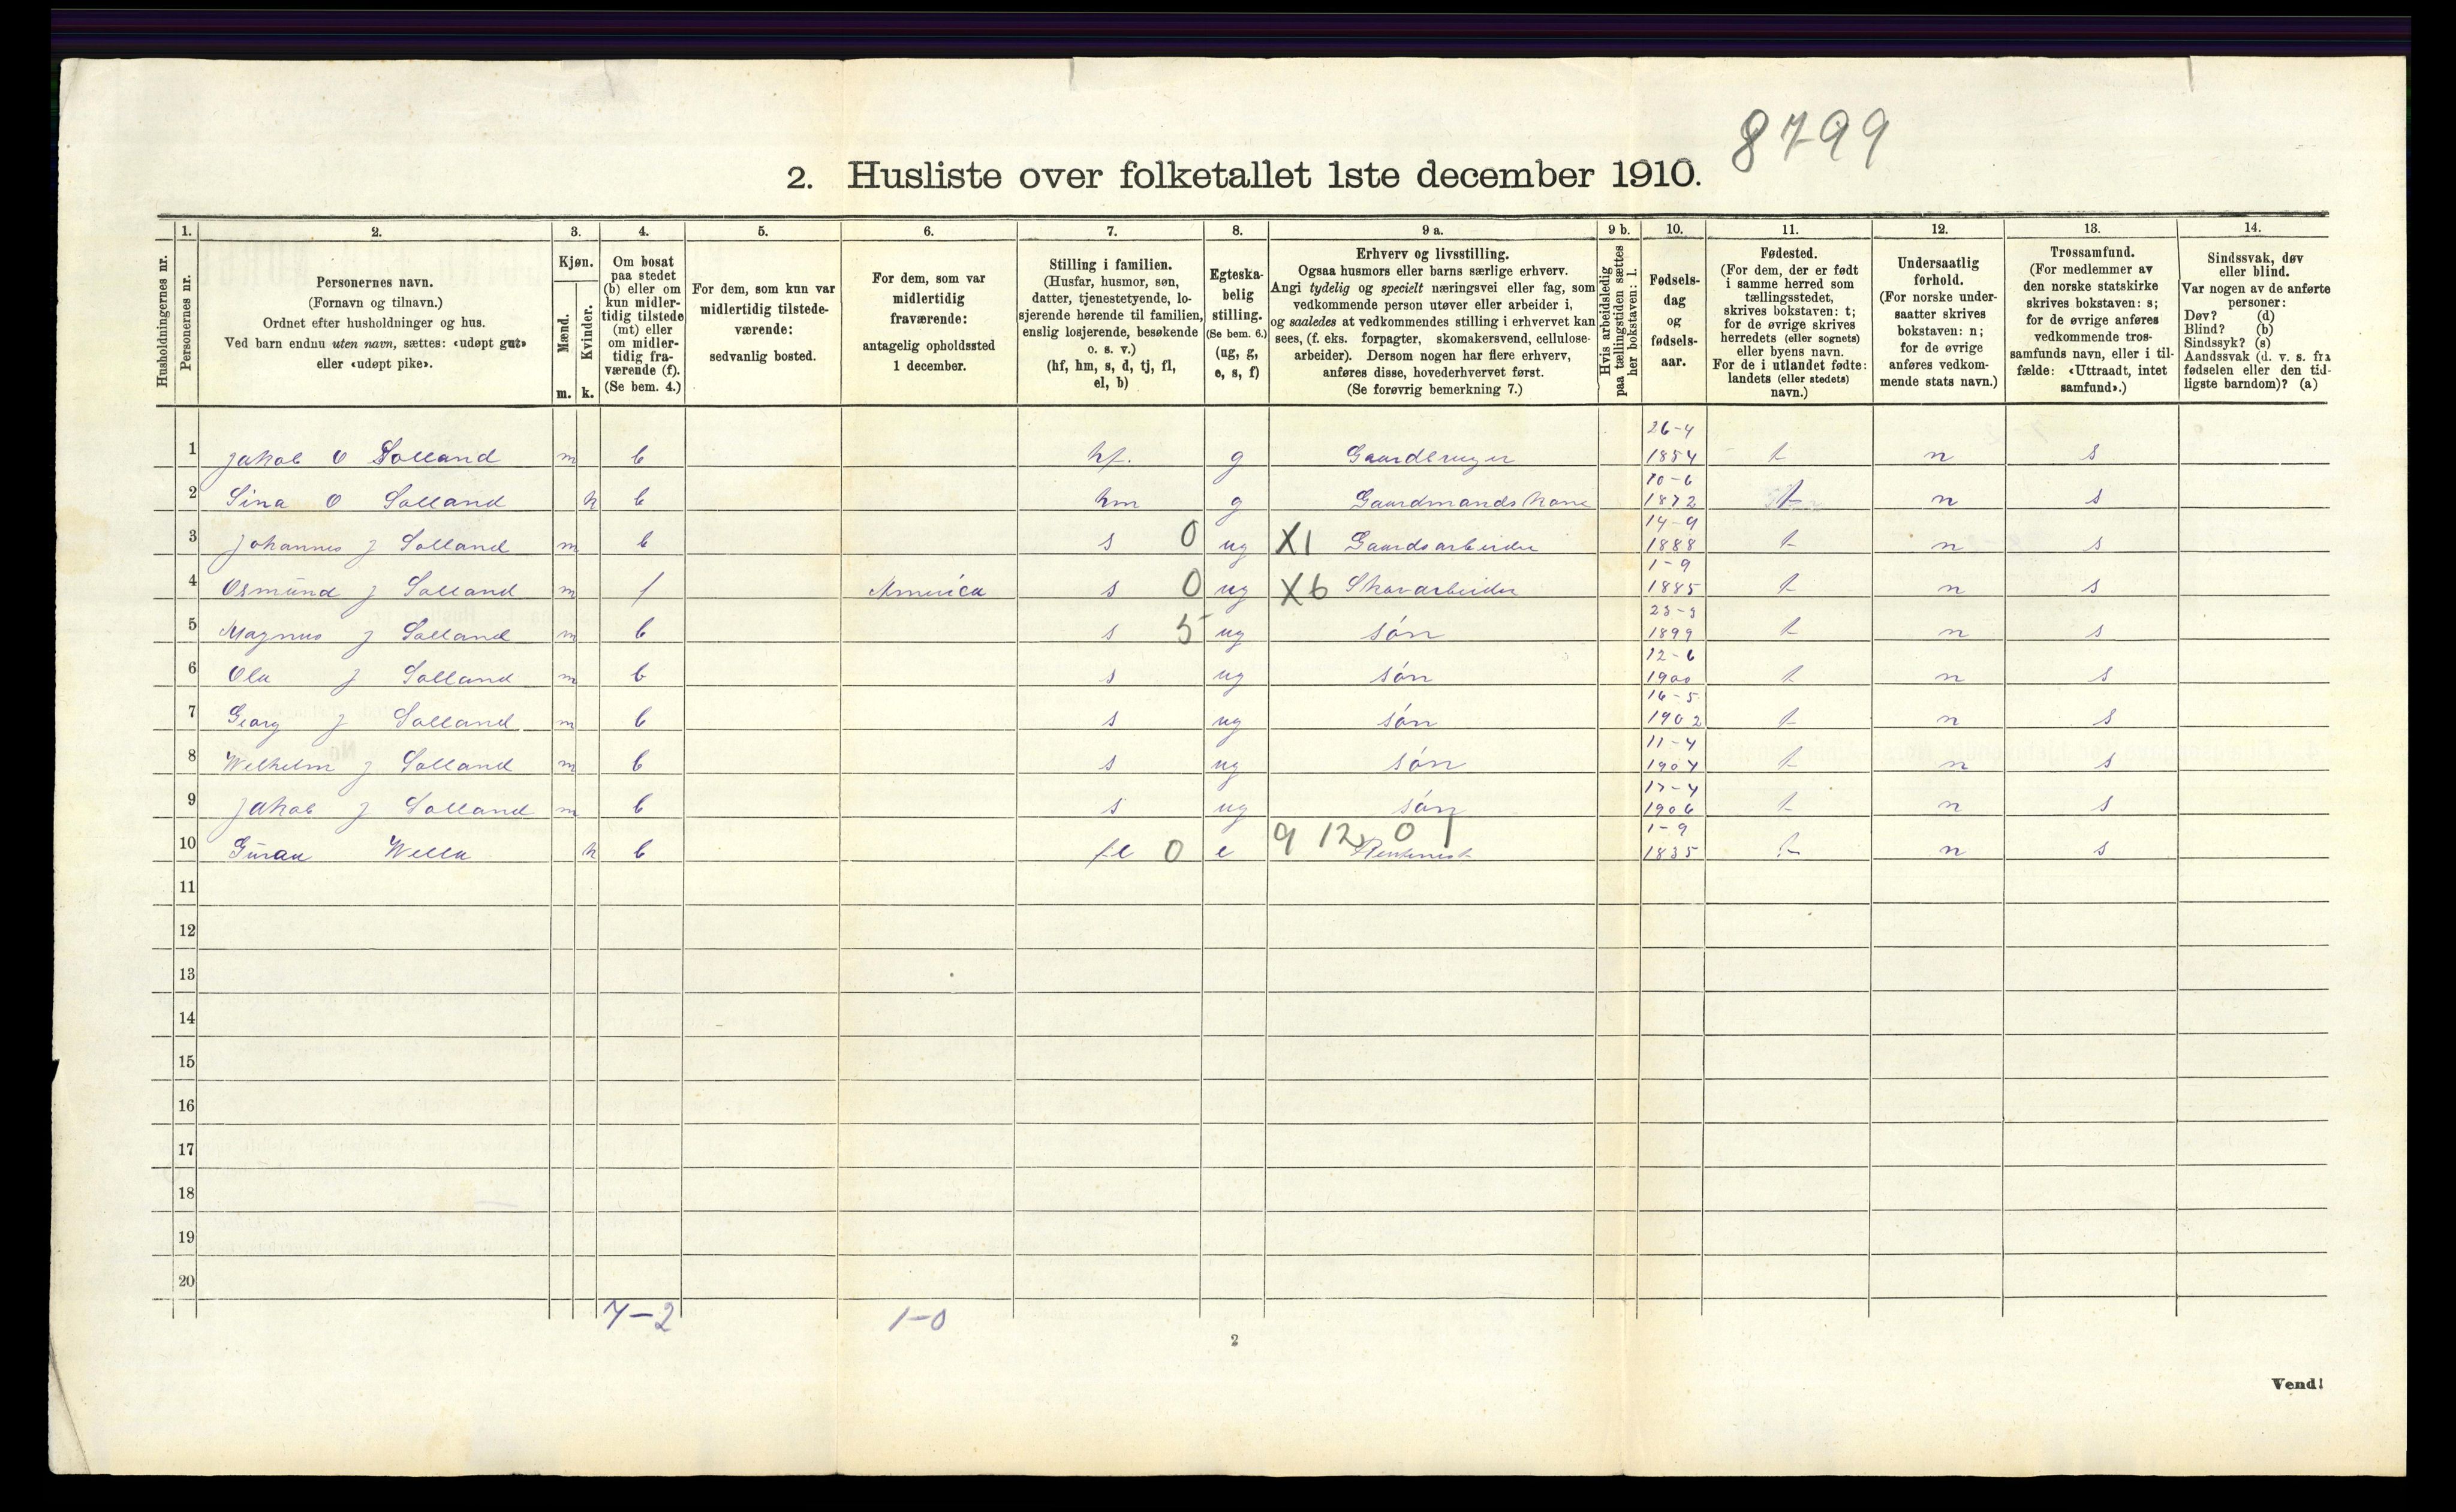 8799
2. Husliste over folketallet 1ste december 1910.
Husholdningernes nr.
1. 2. 3. 4. 5. 6. 7. 8. 9 a. 9 b. 10. 11. 12. 13. 14.
Personernes nr.
Personernes navn.
(Fornavn og tilnavn.)
Ordnet efter husholdninger og hus.
Ved barn endnu uten navn, sættes: «udøpt gut»
eller «udøpt pike».
Kjøn.
Mænd.
Kvinder.
m. k.
Om bosat
paa stedet
(b) eller om
kun midler-
tidig tilstede
(mt) eller
om midler-
tidig fra-
værende (f).
(Se bem. 4.)
For dem, som kun var
midlertidig tilstede-
værende:
sedvanlig bosted.
For dem, som var
midlertidig
fraværende:
antagelig opholdssted
1 december.
Stilling i familien.
(Husfar, husmor, søn,
datter, tjenestetyende, lo-
sjerende hørende til familien,
enslig losjerende, besøkende
o. s. v.)
(hf, hm, s, d, tj, fl,
el, b)
Egteska-
belig
stilling.
(Se bem. 6.)
(ug, g,
e, s, f)
Erhverv og livsstilling.
Ogsaa husmors eller barns særlige erhverv.
Angi tydelig og specielt næringsvei eller fag, som
vedkommende person utøver eller arbeider i,
og saaledes at vedkommendes stilling i erhvervet kan
sees, (f. eks. forpagter, skomakersvend, cellulose-
arbeider). Dersom nogen har flere erhverv,
anføres disse, hovederhvervet først.
(Se forøvrig bemerkning 7.)
Hvis arbeidsledig
paa tællingstiden sættes
her bokstaven: l.
Fødsels-
dag
og
fødsels-
aar.
Fødested.
(For dem, der er født
i samme herred som
tællingsstedet,
skrives bokstaven: t;
for de øvrige skrives
herredets (eller sognets)
eller byens navn.
For de i utlandet fødte:
landets (eller stedets)
navn.)
Undersaatlig
forhold.
(For norske under-
saatter skrives
bokstaven: n;
for de øvrige
anføres vedkom-
mende stats navn.)
Trossamfund.
(For medlemmer av
den norske statskirke
skrives bokstaven: s;
for de øvrige anføres
vedkommende tros-
samfunds navn, eller i til-
fælde: «Uttraadt, intet
samfund».)
Sindssvak, døv
eller blind.
Var nogen av de anførte
personer:
Døv? (d)
Blind? (b)
Sindssyk? (s)
Aandssvak (d. v. s. fra
fødselen eller den tid-
ligste barndom)? (a)
1 Jakob O Solland m b hf. g Gaardbruger 26-4 1854 t n s
2 Sina O Solland k b hm g Gaardmands kone 10-6 1872 t n s
3 Johannes J Solland m b s 0 ug X1 Gaardsarbeider 14-9 1888 t n s
4 Osmund J Solland m f America s 0 ug X6 Skovarbeider 1-9 1885 t n s
5 Magnus J Solland m b s 5 ug søn 23-3 1899 t n s
6 Ola J Solland m b s ug søn 12-6 1900 t n s
7 Georg J Solland m b s ug søn 16-5 1902 t n s
8 Wilhelm J Solland m b s ug søn 11-4 1904 t n s
9 Jakob J Solland m b s ug søn 17-4 1906 t n s
10 Guran k b fl 0 e 9 12 0 1 1-9 1835 t n s
11
12
13
14
15
16
17
18
19
20
7-2 1-0
2
Vend!